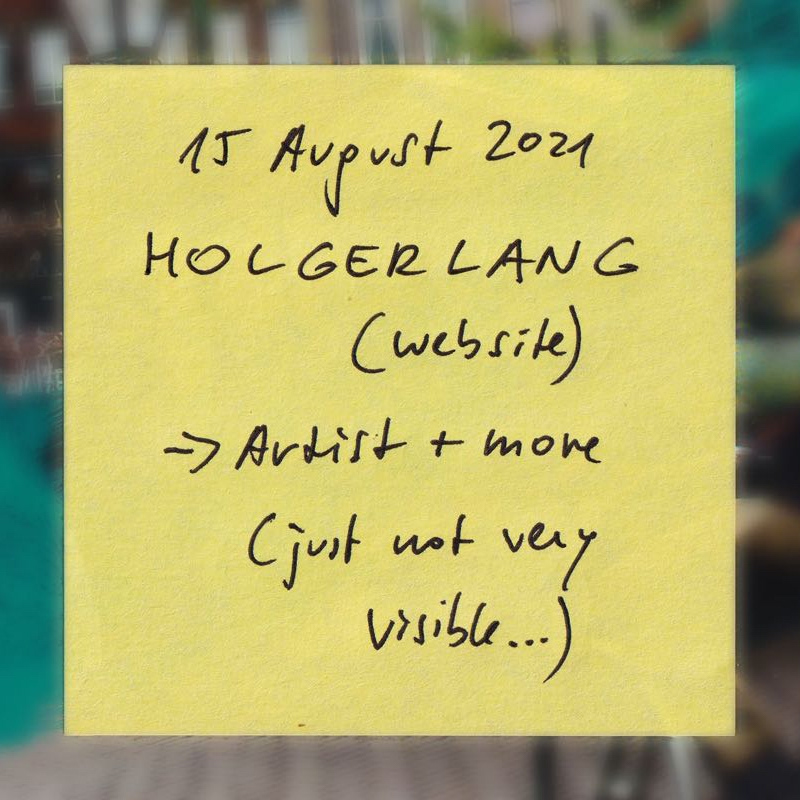 15 August 2021
HOLGER LANG
(website)
-> Artist + more
(just not very
visible...)